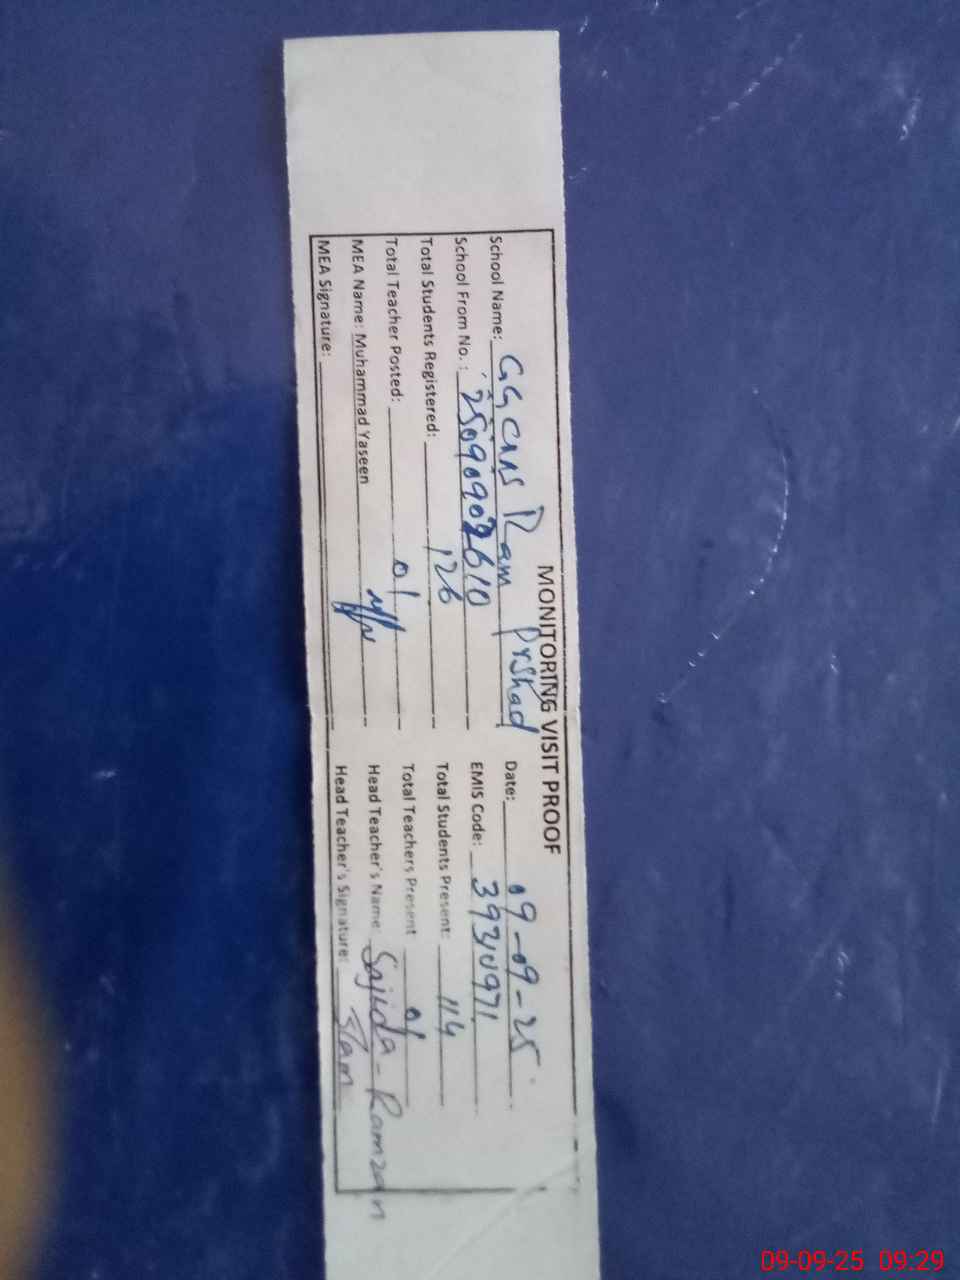 MONITORING VISIT PROOF
School Name: GGCMS Ram Prshad Date: 09-09-25
School From No.: 25090902610 EMIS Code: 39310971
Total Students Registered: 126 Total Students Present: 114
Total Teacher Posted: 01 Total Teachers Present 01
MEA Name: Muhammad Yaseen Head Teacher's Name Sajida-Ramzan
MEA Signature: Head Teacher's Signature:
09-09-25 09:29